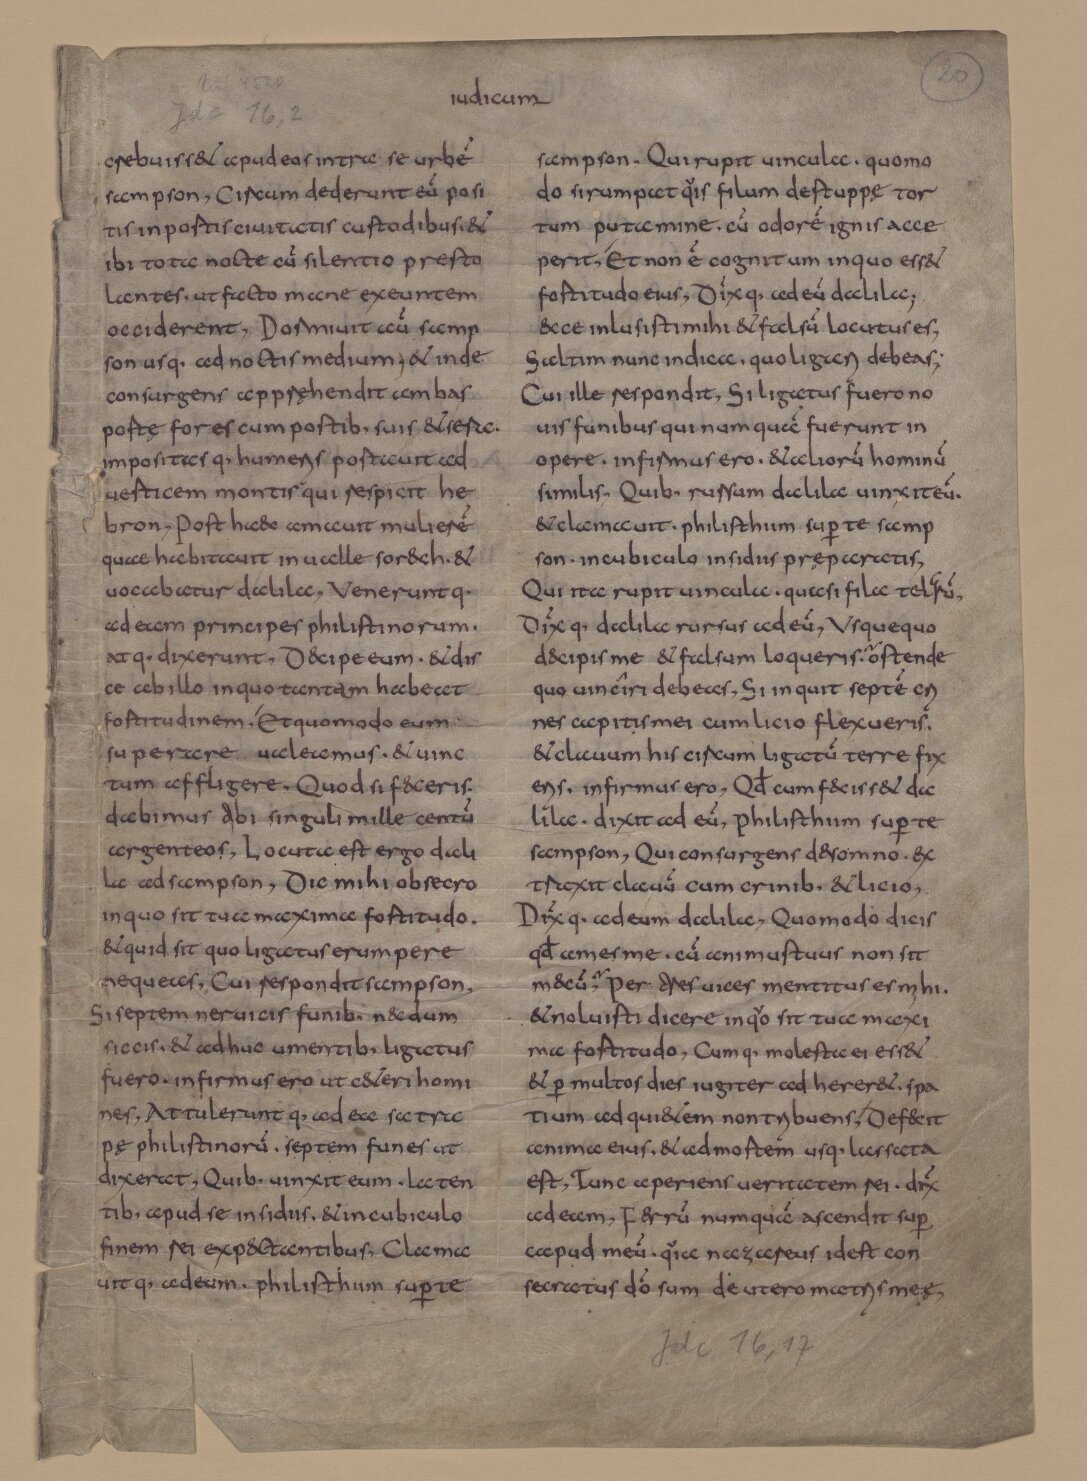 20
Jdc 16,2
iudicum
crebuiss& apud eos intra se urbē
sampson, Circum dederunt eū posi
tis in portis ciuitatis custodibus. &
ibi tota nocte cū silentio presto
lantes. ut facto mane exeuntem
occiderent, Dormiuit aū samp
son usq. ad noctis medium, & inde
consurgens apprehendit ambas
portę fores cum postib. suis & sera.
impositas q. humeris portauit ad
uerticem montis qui respicit he
bron, Post haec amauit mulierē
quae habitauit in ualle sorech. &
uocabatur dalila, Venerunt q.
ad eam principes philistinorum.
atq. dixerunt, Decipe eum. & dis
ce ab illo in quo tantam habeat
fortitudinem, Et quomodo eum
superare ualeamus. & uinc
tum affligere. Quod si feceris.
dabimus tibi singuli mille centū
argenteos, Locuta est ergo dali
la ad sampson, Dic mihi obsecro
in quo sit tua maxima fortitudo.
& quid sit quo ligatus erumpere
nequeas, Cui respondit sampson,
Si septem neruicis funib. necdum
siccis. & adhuc umentib. ligatus
fuero. infirmus ero ut c&eri homi
nes, Attulerunt q. ad ea satra
pę philistinorū. septem funes ut
dixerat, Quib. uinxit eum. laten
tib. apud se insidiis. & in cubiculo
finem rei exp&antibus, Clama
uit q. ad eum. philisthiim sup te
sampson. Qui rupit uincula. quomo
do si rumpat q̊is filum de stuppę tor
tum putamine. cū odorē ignis acce
perit, Et non ē cognitum in quo ess&
fortitudo eius, Dix̄ q. ad eū dalila,
Ecce inlusisti mihi & falsū locutus es,
Saltim nunc indica. quo ligari debeas;
Cui ille respondit, Si ligatus fuero no
uis funibus qui numquā fuerunt in
opere. infirmus ero. & aliorū hominū
similis, Quib. rursum dalila uinxit eū.
& clamauit. philisthiim sup te samp
son. in cubiculo insidiis pręparatis,
Qui ita rupit uincula. quasi fila telarū,
Dix̄ q. dalila rursus ad eū, Usquequo
decipis me & falsum loqueris. ostende
quo uinciri debeas, Si inquit septē cri
nes capitis mei cum licio flexueris.
& clauum his circum ligatū terre fix
eris. infirmus ero, Qd̄ cum feciss& da
lila. dixit ad eū, Philisthiim sup te
sampson, Qui consurgens de somno. ex
traxit clauū cum crinib. & licio,
Dix̄ q. ad eum dalila, Quomodo dicis
qd̄ ames me. cū animus tuus non sit
mecū. Per tres uices mentitus es mihi.
& noluisti dicere in q̊o sit tua maxi
ma fortitudo, Cumq. molesta ei ess&
& p multos dies iugiter ad herer&. spa
tium ad qui&em non tribuens, Defecit
anima eius. & ad mortem usq. lassata
est, Tunc aperiens ueritatem rei. dix̄
ad eam, Ferrū numquā ascendit sup
caput meū. q̊ia nazareus id est con
secratus dō sum de utero matris meę,
Jdc 16,17